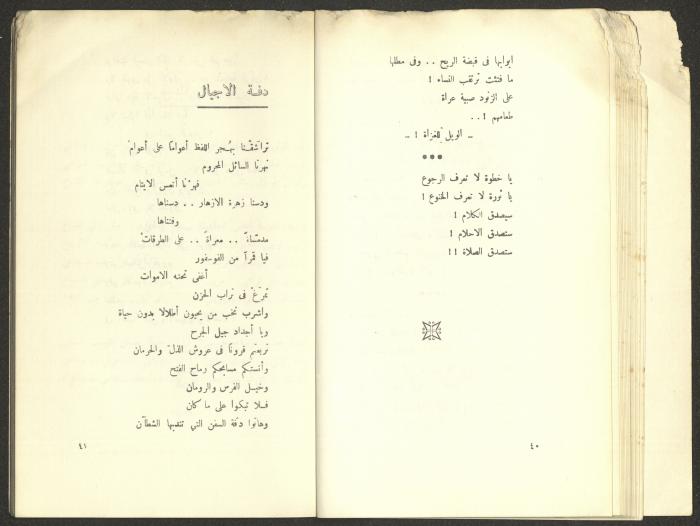 ابوابها فى قبضة الريح .. وفى مطلها
ما فتئت ترتقب النساء !
على الزنود صبية عراة
طعامهم ! ..
ـ الويل للغزاة ! ـ
●●●
يا خطوة لا تعرف الرجوع
يا ثورة لا تعرف الخنوع !
سيصدق الكلام !
ستصدق الاحلام !
ستصدق الصلاة !!
٤٠
دفـة الاجيال
تراشَقْـنا بهُـجر اللفظ أعوامًا على أعوامْ
نهرنا السائل المحروم
قهرْنا أنفس الايتام
ودسنا زهرة الازهار .. دسناها
وفتناها
مدمّـاةً .. معراةً .. على الطرقاتْ
فيا قمرًا من الفوسفور
أغفى تحته الاموات
تمرّغْ فى تراب الحزن
واشرب نخب من يحيون أطلالا بدون حياة
ويا أجداد جيل الجرح
تربعتم قرونًا فى عروش الذلّ والحرمان
وأنستكم مسابحكم رماح الفتح
وخيـل الفرس والرومان
فـلا تبكوا على ما كان
وهاتوا دفة السفن التي تندبها الشطآن
٤١